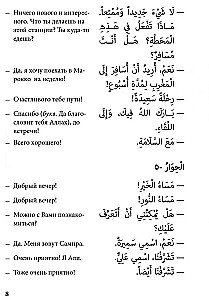 – Ничего нового и интерес-
ного. Что ты делаешь на
этой станции? Ты куда-то
едешь?
– Да, я хочу поехать в Ма-
рокко на неделю!
– Счастливого тебе пути!
– Спасибо (букв. Да благо-
словит тебя Аллах), до
встречи!
– Всего хорошего!
– Добрый вечер!
– Добрый вечер!
– Можно с Вами познако-
миться?
– Да. Меня зовут Самира.
– Очень приятно! Я Али.
– Тоже очень приятно!
8
– لَا شَيْءَ جَدِيداً وَمُمْتِعاً.
مَاذَا تَفْعَلُ فِي هَذِهِ
الْمَحَطَّةِ؟ هَلْ أَنْتَ
مُسَافِرٌ؟
– نَعَمْ، أُرِيدُ أَنْ أُسَافِرَ إِلَى
الْمَغْرِبِ لِمُدَّةِ أُسْبُوعٍ!
– رِحْلَةً سَعِيدَةً!
– بَارَكَ اللهُ فِيكَ، وَإِلَى
اللِّقَاءِ.
– مَعَ السَّلَامَةِ.
الْحِوَار ٥٠
– مَسَاءُ الْخَيْرِ!
– مَسَاءُ النُّورِ!
– هَلْ يُمْكِنُنِي أَنْ أَتَعَرَّفَ
عَلَيْكِ؟
– نَعَمْ، اسْمِي سَمِيرَةُ.
– تَشَرَّفْنَا، اسْمِي عَلِيٌّ.
– تَشَرَّفْنَا أَيْضاً.